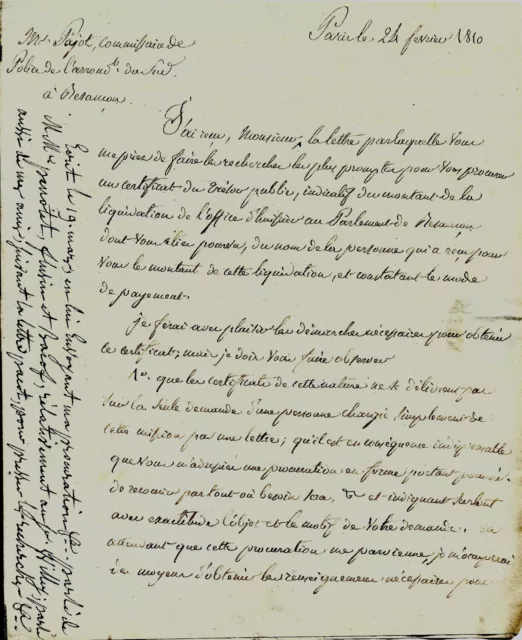 Paris le 24 février 1810
Mr. Pajot, commissaire de
Police de l'arrondt. du Sud.
à Besançon.
J'ai reçu, Monsieur, la lettre par laquelle Vous
me priez de faire les recherches les plus promptes pour Vous procurer
un certificat du Trésor public, indicatif du montant de la
liquidation de l'office d'huissier au Parlement de Besançon
dont Vous étiez pourvu, du nom de la personne qui a reçu pour
Vous le montant de cette liquidation, et constatant le mode
de payement.
Je ferai avec plaisir les démarches nécessaires pour obtenir
ce certificat; mais je dois Vous faire observer
1o. que les certificats de cette nature ne se délivrent pas
sur la seule demande d'une personne chargée simplement de
cette mission par une lettre; qu'il est en conséquence indispensable
que Vous m'adressiez une procuration en forme portant pouvoir
de recourir partout où besoin sera, & et indiquant surtout
avec exactitude l'objet et le motif de Votre demande. en
attendant que cette procuration me parvienne, je m'occuperai
des moyens d'obtenir les renseignemens nécessaires pour
Ecrit le 19 mars, en lui envoyant ma procuration &a. parlé de
M. Me. relativement aux
aussi de mes amis; joignant sa lettre pour presser les recherches &a.